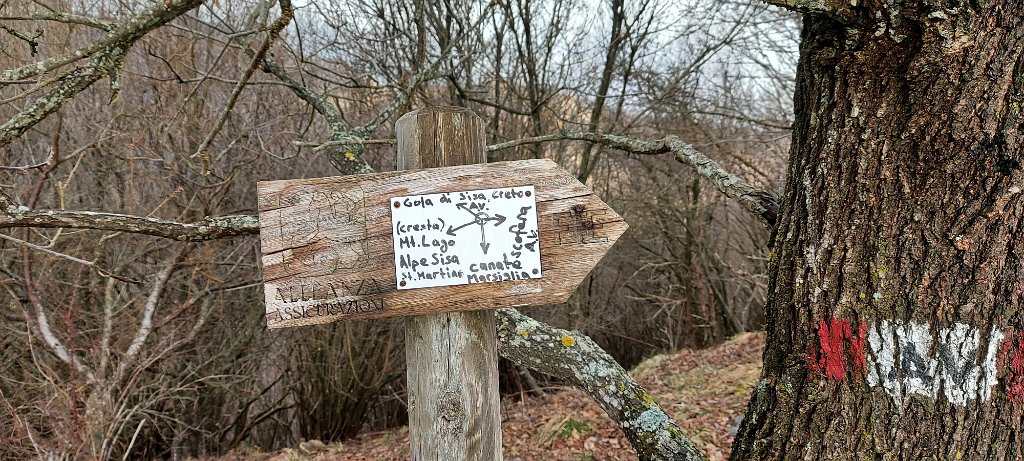 Gola di Sisa, Creto
AV.
(cresta)
Mt. Lago
Alpe Sisa
St. Martino
canate
Marsiglia
ALLEANZA
ASSICURAZIONI
AV